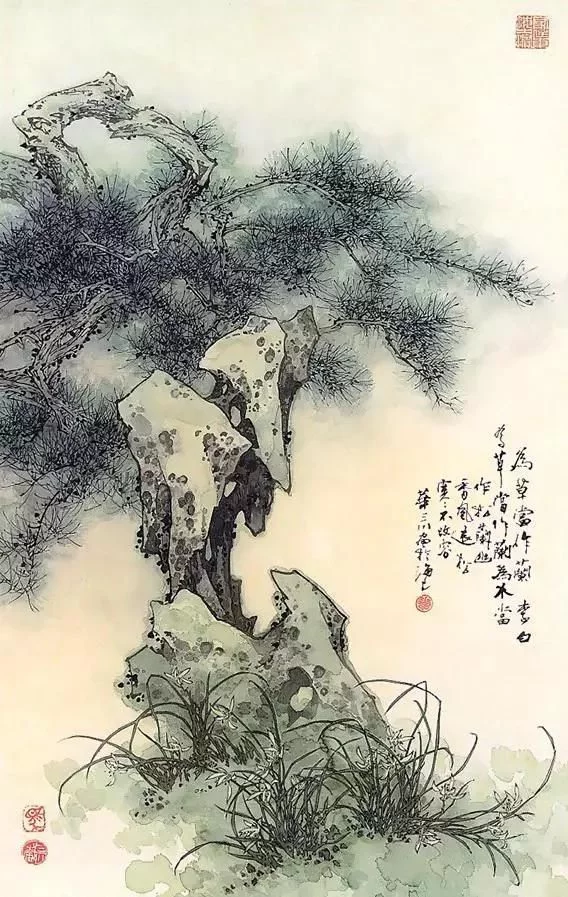 為草當作蘭 李白
為草當作蘭為木當
作松蘭幽
香風遠松
寒不改容
華三川畫於海上